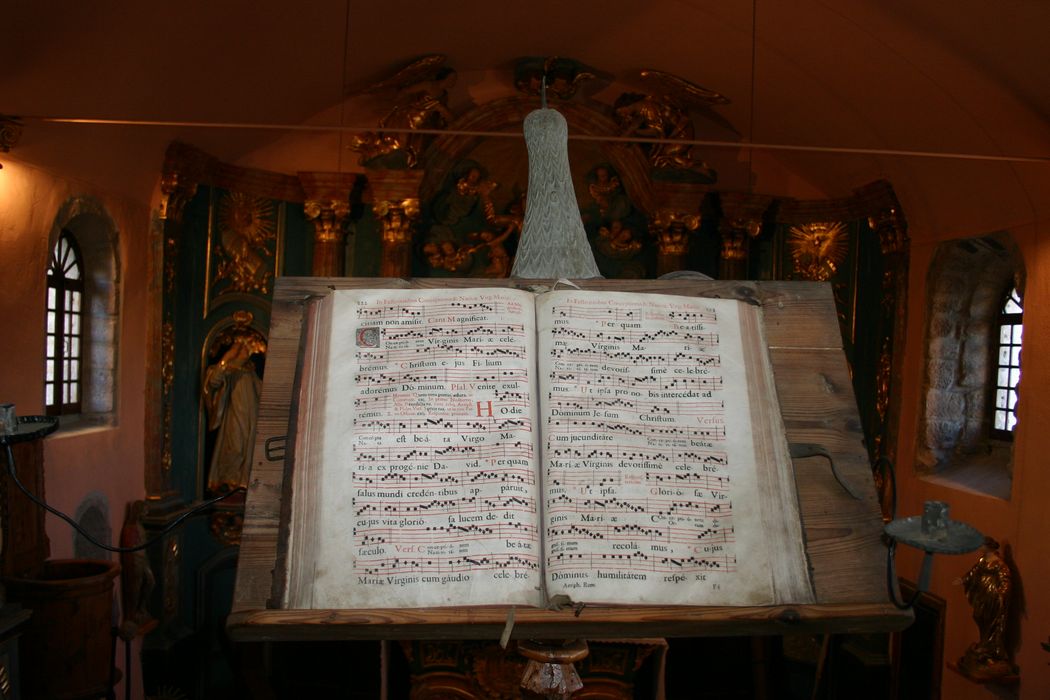 222 In Festivitatibus Conceptionis & Nativit. Virg. Mariæ.
ctiam non amisit. Cant. Magnificat.
Virginis Mariæ cele-
bremus. Christum ejus Filium
adoremus Dóminum. Psal. Venite exult.
rémus. HOdie
est beáta Virgo Ma-
ría ex progénie David. Per quam
salus mundi credéntibus appáruit,
cujus vita glorió sa lucem dedit
sæculo. Vers. beátæ
Mariæ Virginis cum gáudio cele bré-
In Festivitatibus Conceptionis & Nativ. Virg. Mariæ.
mus. Per quam Beatíssi-
ma Vírginis Ma rí æ
devotíssimè ce le bré-
mus. Ut ipsa pro no bis intercédat ad
Dominum Jesum Christum. Versus
Cum jucunditáte beátæ
Maríæ Vírginis devotíssimè cele bré-
mus. Ut ipsa. Glorió sæ Vir-
ginis Marí æ
recolá mus, Cujus
Dominus humilitátem respé xit
Antiph. Rom.